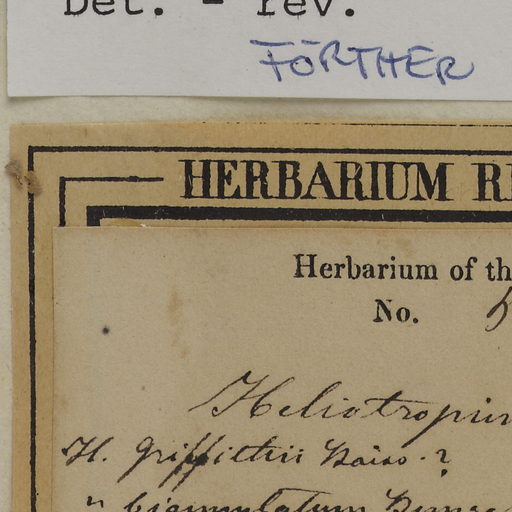 Det. - rev.
FÖRTHER
HERBARIUM R
Herbarium of th
No. 5
Heliotropiu
H. Griffithii Boiss. ?
" Bunge